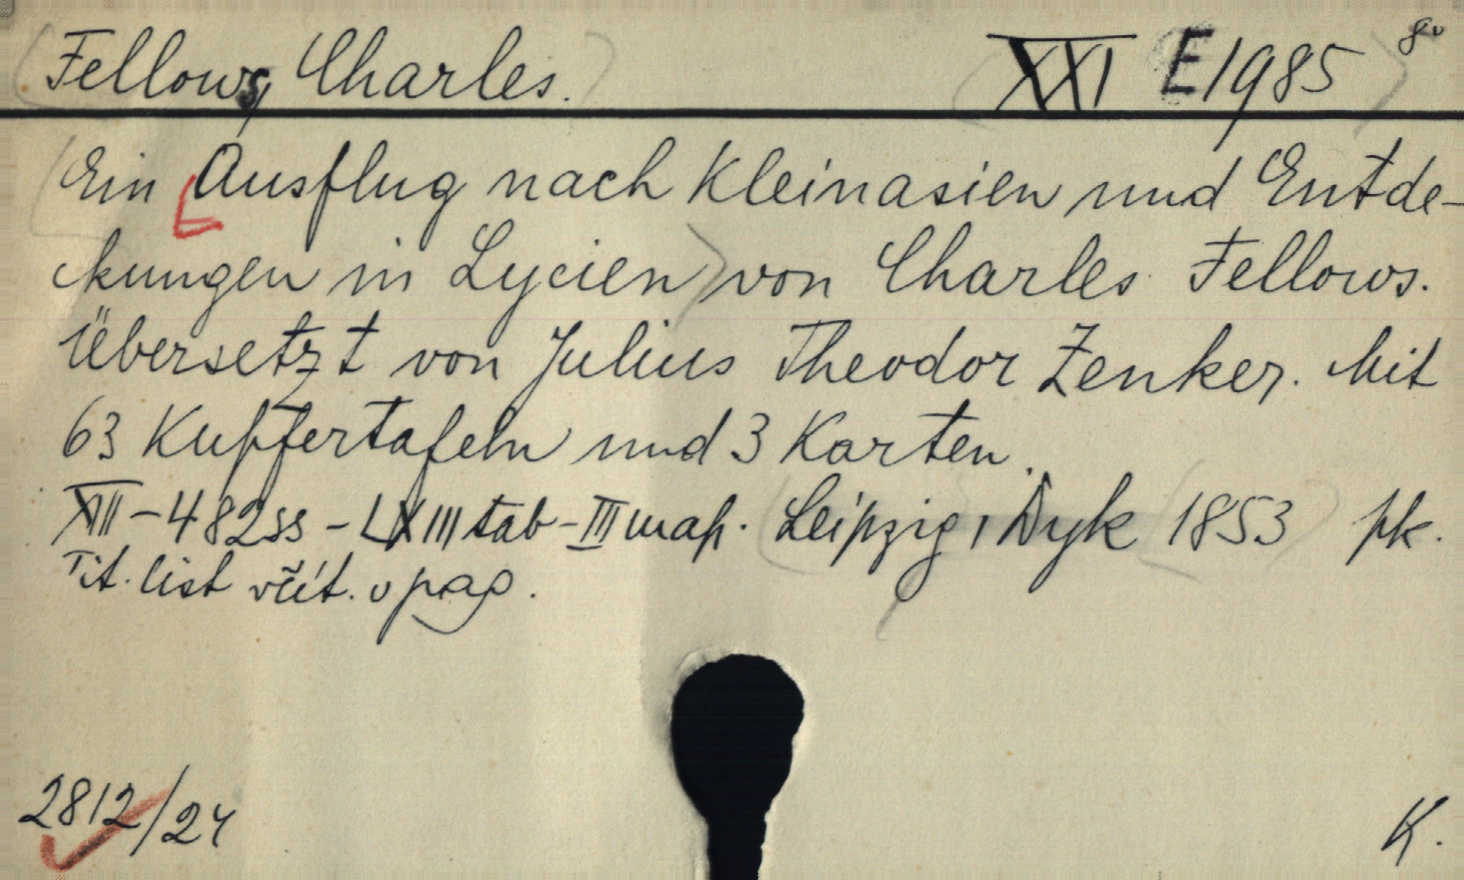 Fellows, Charles. XXI E 1985 8º
Ein Ausflug nach Kleinasien und Entde-
ckungen in Lycien von Charles Fellows.
Übersetzt von Julius Theodor Zenker. Mit
63 Kupfertafeln und 3 Karten.
XII – 482 ss – LXIII tab – III map. Leipzig, Dyk 1853 pk.
Tit. list včít. v pag.
2812/24 K.